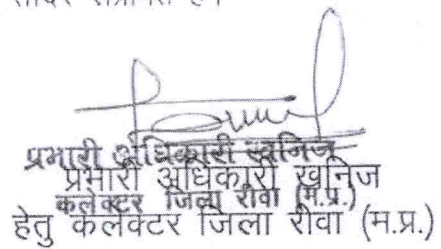 प्रभारी अधिकारी खनिज
प्रभारी अधिकारी खनिज
कलेक्टर जिला रीवा (म.प्र.)
हेतु कलेक्टर जिला रीवा (म.प्र.)